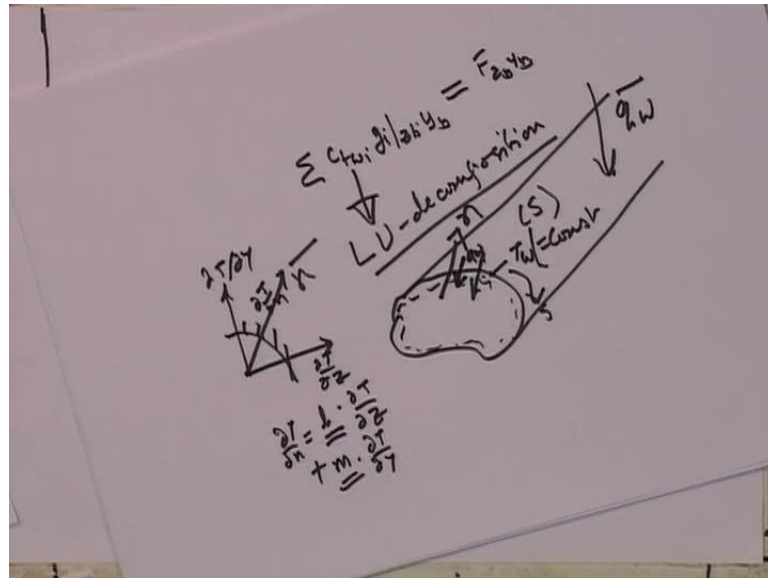 Σ C_{Twi} g_i|_{z_b, y_b} = F_{z_b y_b}
LU-decomposition
q̄_w
n
(S)
T_w|=const
s
∂T/∂Y
∂T/∂n
n
∂T/∂z
∂T/∂n = l · ∂T/∂z
+ m · ∂T/∂Y